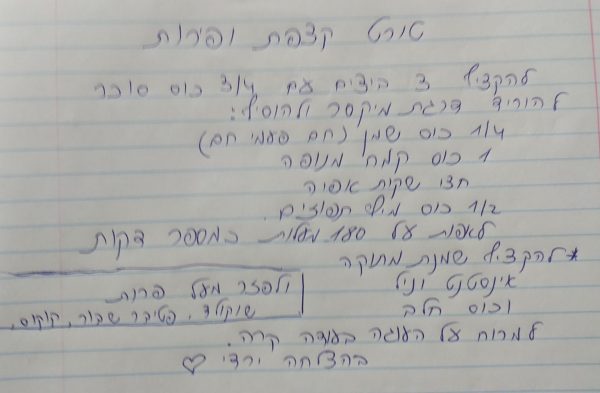 טורט קצפת ופירות
להקציף 3 ביצים עם 3/4 כוס סוכר
להוריד דרגת מיקסר ולהוסיף:
1/4 כוס שמן (חם פעמי חם)
1 כוס קמח מנופה
חצי שקית אפיה
1/2 כוס מיץ תפוזים.
לאפות על 180 מעלות כמספר דקות
* להקציף שמנת מתוקה
אינסטנט וניל
וכוס חלב
ולפזר מעל פרות
שוקולד, פטיבר שבור, קוקוס.
למרוח על העוגה בעודה קרה.
בהצלחה ירדי ♡